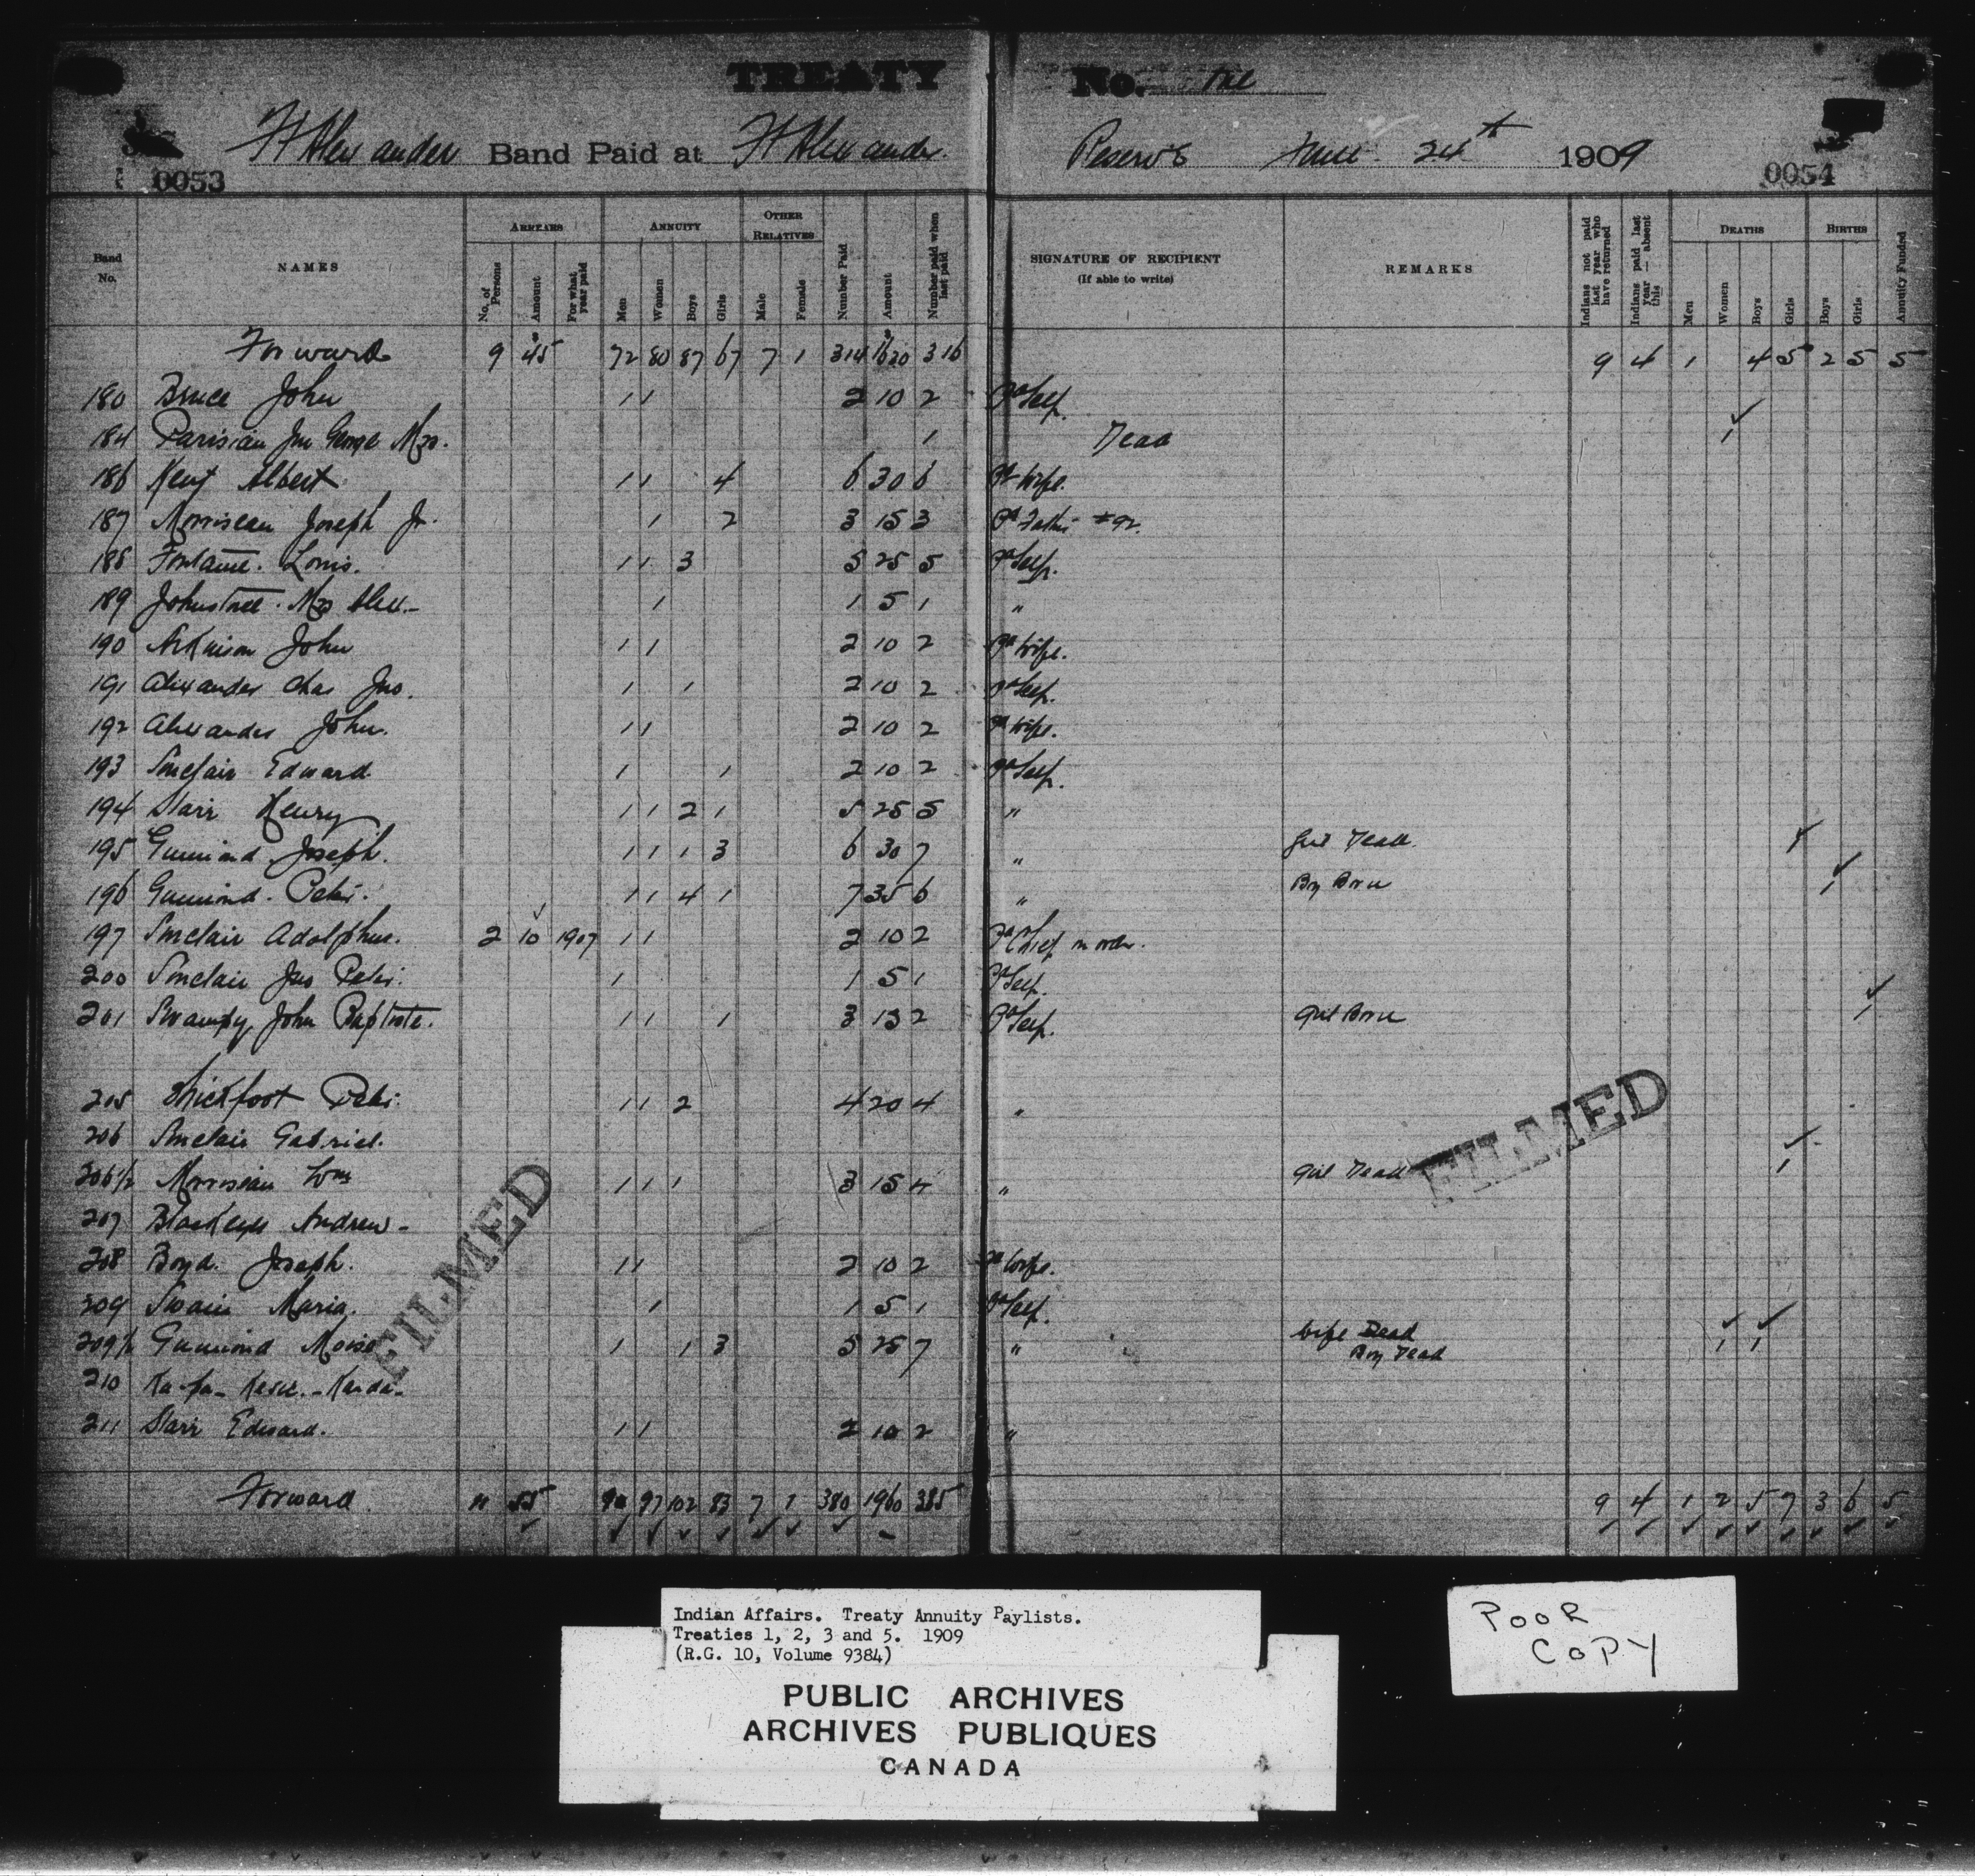 TREATY No. One
Ft Alexander Band Paid at Ft Alexander Reserve June 24th 1909
0053 0054
Band No. NAMES ARREARS No. of Persons Amount For what year paid ANNUITY Men Women Boys Girls OTHER RELATIVES Male Female Number Paid Amount Number paid when last paid SIGNATURE OF RECIPIENT (If able to write) REMARKS Indians not paid last year who have returned Indians paid last year — absent this DEATHS Men Women Boys Girls BIRTHS Boys Girls Annuity Funded
Forward 9 45 72 80 87 67 7 1 314 1620 316 9 4 1 4 5 2 5 5
180 Bruce John 1 1 2 10 2 Pd Self.
184 Parisian Jno George Mrs. 1 Dead 1
186 Kent Albert 1 1 4 6 30 6 Pd Wife.
187 Morriseau Joseph Jr. 1 2 3 15 3 Pd Father #92.
188 Fontaine. Louis. 1 1 3 5 25 5 Pd Self.
189 Johnstone. Mrs Alex. 1 1 5 1 "
190 Atkinson John 1 1 2 10 2 Pd Wife.
191 Alexander Chas Jno. 1 1 2 10 2 Pd Self.
192 Alexander John. 1 1 2 10 2 Pd Wife.
193 Sinclair Edward 1 1 2 10 2 Pd Self.
194 Starr Henry 1 1 2 1 5 25 5 "
195 Guimond Joseph. 1 1 1 3 6 30 7 " Girl Dead. 1
196 Guimond. Peter. 1 1 4 1 7 35 6 " Boy Born 1
197 Sinclair Adolphus. 2 10 1907 1 1 2 10 2 Pd Chief on order.
200 Sinclair Jno Peter. 1 1 5 1 Pd Self.
201 Swampy John Baptiste. 1 1 1 3 15 2 Pd Self. Girl Born 1
205 Thickfoot Peter. 1 1 2 4 20 4 "
206 Sinclair Gabriel.
206½ Morriseau Wm 1 1 1 3 15 4 " Girl Dead 1
207 Blackeyes Andrew -
208 Boyd. Joseph. 1 1 2 10 2 Pd Wife.
209 Swain Maria. 1 1 5 1 Pd Self.
209½ Guimond Moise 1 1 3 5 25 7 " Wife Dead 1 1
Boy Dead
210
211 Starr Edward. 1 1 2 10 2 "
Forward 11 55 90 97 102 83 7 1 380 1960 385 9 4 1 2 5 7 3 6 5
FILMED
FILMED
Indian Affairs. Treaty Annuity Paylists.
Treaties 1, 2, 3 and 5. 1909
(R.G. 10, Volume 9384)
PUBLIC ARCHIVES
ARCHIVES PUBLIQUES
CANADA
POOR
COPY